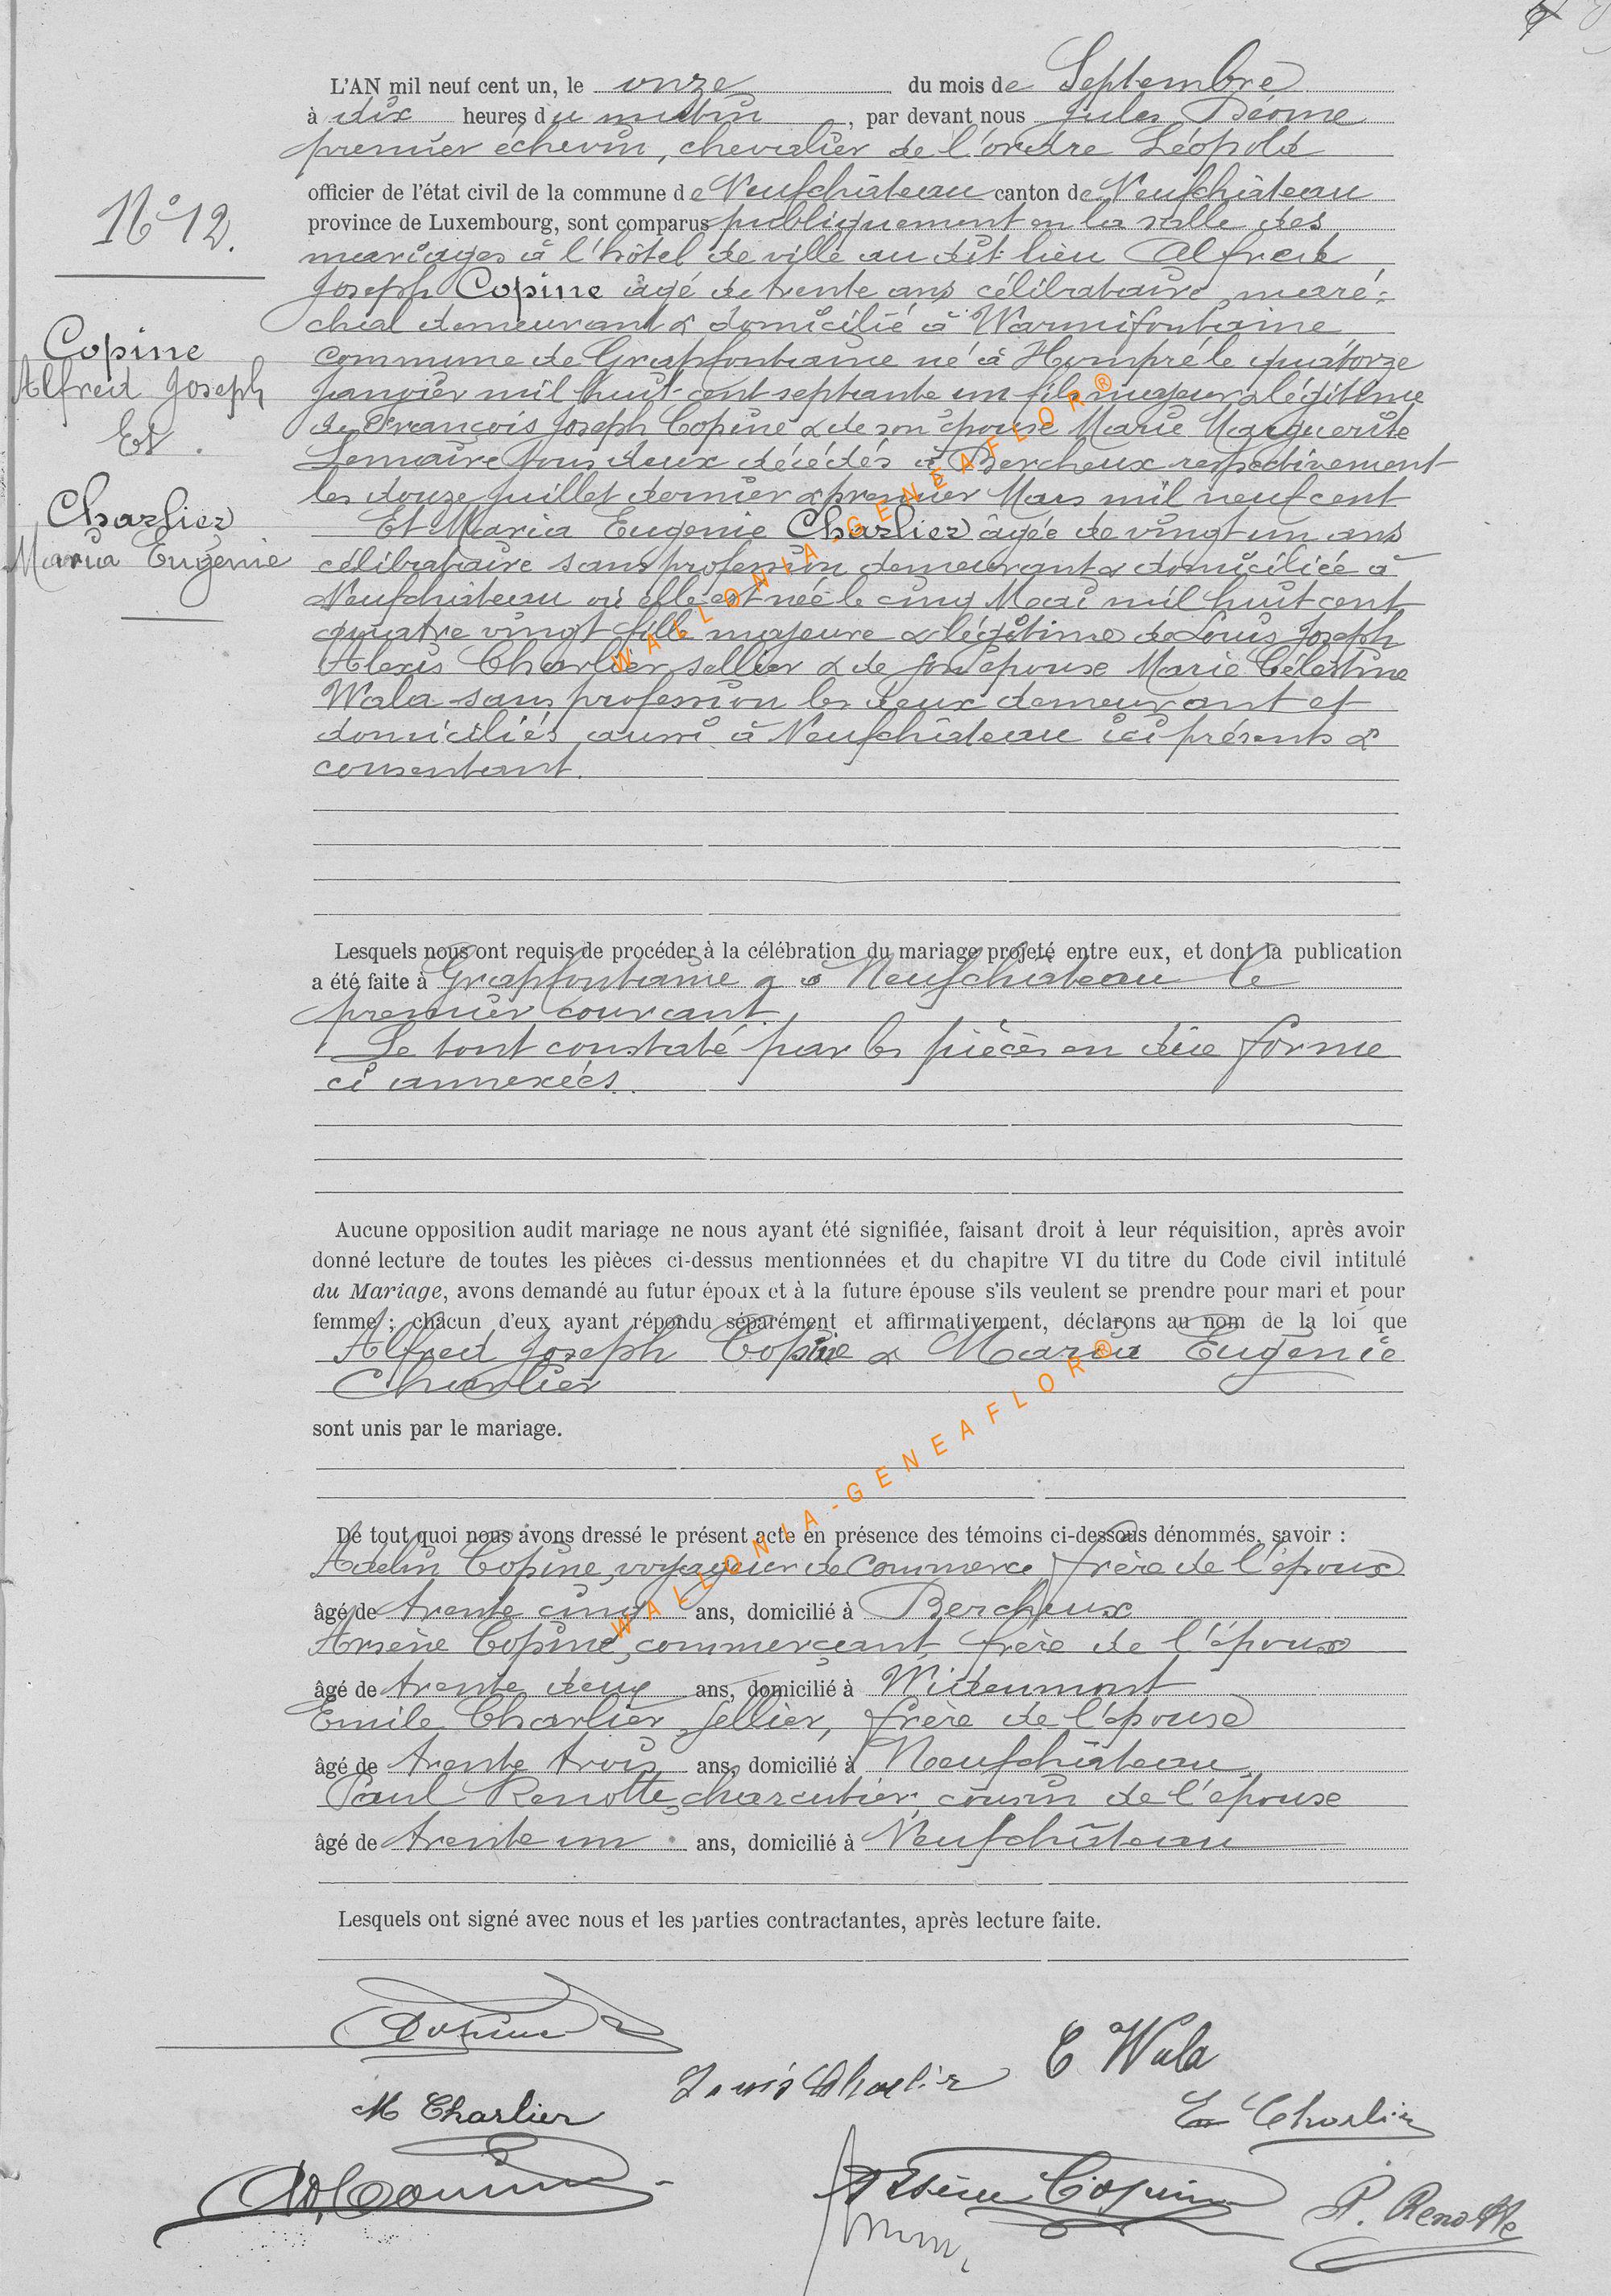 L'AN mil neuf cent un, le onze du mois de Septembre
à dix heures du matin, par devant nous Jules Déome
premier échevin, chevalier de l'ordre Léopold
officier de l'état civil de la commune de Neufchâteau canton de Neufchâteau
province de Luxembourg, sont comparus publiquement en la salle des
mariages à l'hôtel de ville au dit lieu Alfred
Joseph Copine âgé de trente ans célibataire, maré-
chal demeurant & domicilié à Warmifontaine
commune de Grapfontaine né à Hompré le quatorze
Janvier mil huit cent septante un fils majeur & légitime
de François Joseph Copine & de son épouse Marie Marguerite
Lemaire tous deux décédés à Bercheux respectivement
les douze Juillet dernier & premier Mars mil neuf cent
Et Maria Eugenie Charlier âgée de vingt un ans
célibataire sans profession demeurant & domiciliée à
Neufchâteau où elle est née le cinq Mai mil huit cent
quatre vingt fille majeure & légitime de Louis Joseph
Alexis Charlier sellier & de son épouse Marie Célestine
Wala sans profession les deux demeurant et
domiciliés aussi à Neufchâteau ici présents &
consentant.
N° 12.
Copine
Alfred Joseph
Et.
Charlier
Maria Eugenie
Lesquels nous ont requis de procéder à la célébration du mariage projeté entre eux, et dont la publication
a été faite à Grapfontaine & à Neufchâteau le
premier courant.
Le tout constaté par les pièces en due forme
ci annexées.
Aucune opposition audit mariage ne nous ayant été signifiée, faisant droit à leur réquisition, après avoir
donné lecture de toutes les pièces ci-dessus mentionnées et du chapitre VI du titre du Code civil intitulé
du Mariage, avons demandé au futur époux et à la future épouse s'ils veulent se prendre pour mari et pour
femme ; chacun d'eux ayant répondu séparément et affirmativement, déclarons au nom de la loi que
Alfred Joseph Copine & Maria Eugenie
Charlier
sont unis par le mariage.
De tout quoi nous avons dressé le présent acte en présence des témoins ci-dessous dénommés, savoir :
Adelin Copine, voyageur de commerce, frère de l'époux
âgé de trente cinq ans, domicilié à Bercheux
Arsène Copine, commerçant, frère de l'époux
âgé de trente deux ans, domicilié à Wideumont
Emile Charlier, sellier, frère de l'épouse
âgé de trente trois ans, domicilié à Neufchâteau
Paul Renotte, charcutier, cousin de l'épouse
âgé de trente un ans, domicilié à Neufchâteau
Lesquels ont signé avec nous et les parties contractantes, après lecture faite.
Louis Charlier
C Wala
M Charlier
Em Charlier
Ad Copine
Arsène Copine
P. Renotte
WALLONIA-GENEAFLOR®
WALLONIA-GENEAFLOR®